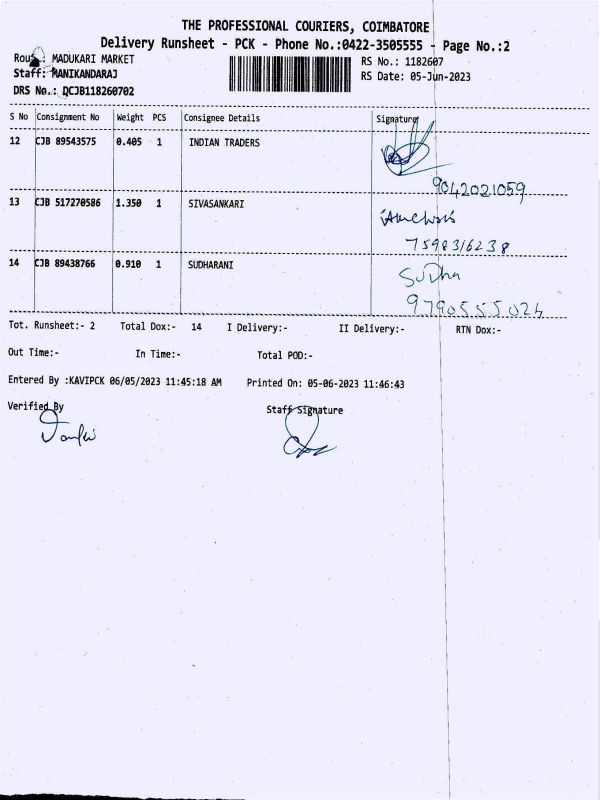 THE PROFESSIONAL COURIERS, COIMBATORE
Delivery Runsheet - PCK - Phone No.:0422-3505555 - Page No.:2
MADUKARI MARKET
RS No.: 1182607
Staff: MANIKANDARAJ
RS Date: 05-Jun-2023
DRS No.: DCJB118260702
S No Consignment No Weight PCS Consignee Details Signature
12 CJB 89543575 0.405 1 INDIAN TRADERS
9042021059
13 CJB 517270586 1.350 1 SIVASANKARI
7598316238
14 CJB 89438766 0.910 1 SUDHARANI
SuDha
9790555024
Tot. Runsheet:- 2 Total Dox:- 14 I Delivery:- II Delivery:- RTN Dox:-
Out Time:- In Time:- Total POD:-
Entered By :KAVIPCK 06/05/2023 11:45:18 AM Printed On: 05-06-2023 11:46:43
Verified By Staff Signature